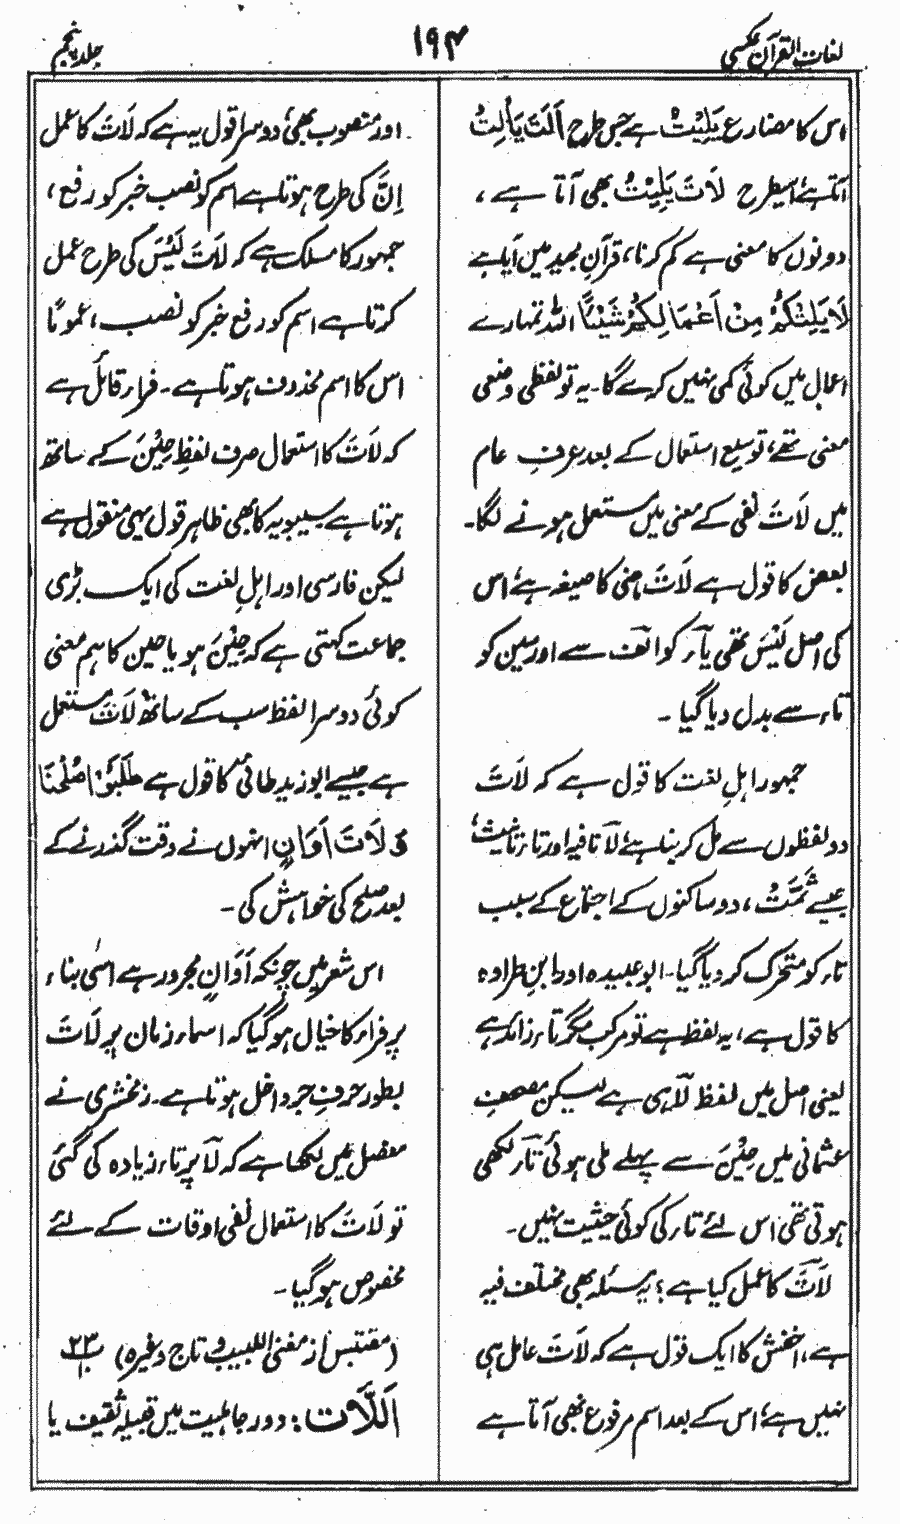 لغات القرآن عکسی
۱۹۴
جلد پنجم
اس کا مضارع یَلِیْتُ ہے جس طرح اَلَتَ یَأْلِتُ
آتا ہے اسیطرح لَاتَ یَلِیْتُ بھی آتا ہے ،
دونوں کا معنی ہے کم کرنا، قرآنِ مجید میں آیا ہے
لَا یَلِتْکُمْ مِنْ اَعْمَالِکُمْ شَیْئًا اللہ تمہارے
اعمال میں کوئی کمی نہیں کرے گا۔ یہ تو لفظی وضعی
معنی تھے، توسیع استعمال کے بعد عرفِ عام
میں لَاتَ نفی کے معنی میں مستعمل ہونے لگا۔
بعض کا قول ہے لَاتَ ماضی کا صیغہ ہے، اس
کی اصل لَیْسَ تھی یآر کو الف سے اور سین کو
تاء سے بدل دیا گیا ۔
جمہور اہلِ لغت کا قول ہے کہ لَاتَ
دو لفظوں سے مل کر بنا ہے، لَا نافیہ اور تاء تانیث،
جیسے ثُمَّتُ ، دو ساکنوں کے اجتماع کے سبب
تاء کو متحرک کر دیا گیا۔ ابو عبیدہ اور ابن طراوہ
کا قول ہے، یہ لفظ ہے تو مرکب مگر تاء زائد ہے
یعنی اصل میں لفظ لَا ہی ہے لیکن مصحفِ
عثمانی میں حِیْنَ سے پہلے ملی ہوئی تآر لکھی
ہوتی تھی اس لئے تاء کی کوئی حیثیت نہیں ۔
لَاتَ کا عمل کیا ہے ؛ یہ مسئلہ بھی مختلف فیہ
ہے، اخفش کا ایک قول ہے کہ لَاتَ عامل ہی
نہیں ہے، اس کے بعد اسم مرفوع بھی آتا ہے
اور منصوب بھی، دوسرا قول یہ ہے کہ لَاتَ کا عمل
اِنَّ کی طرح ہوتا ہے اسم کو نصب خبر کو رفع ،
جمہور کا مسلک ہے کہ لَاتَ لَیْسَ کی طرح عمل
کرتا ہے اسم کو رفع خبر کو نصب ، عموماً
اس کا اسم محذوف ہوتا ہے ۔ فراء قائل ہے
کہ لَاتَ کا استعمال صرف لفظِ حِیْنَ کے ساتھ
ہوتا ہے سیبویہ کا بھی ظاہر قول یہی منقول ہے
لیکن فارسی اور اہلِ لغت کی ایک بڑی
جماعت کہتی ہے کہ حِیْنَ ہو یا حین کا ہم معنی
کوئی دوسرا لفظ سب کے ساتھ لَاتَ مستعمل
ہے جیسے ابو زبید طائی کا قول ہے طَلَبُوْا صُلْحَنَا
وَ لَاتَ اَوَانٍ انہوں نے وقت گذرنے کے
بعد صلح کی خواہش کی ۔
اس شعر میں چونکہ اَوَانٍ مجرور ہے اسی بناء
پر فراء کا خیال ہو گیا کہ اسماء زمان پر لَاتَ
بطور حرفِ جر داخل ہوتا ہے ۔ زمخشری نے
مفصل میں لکھا ہے کہ لَا پر تاء زیادہ کی گئی
تو لَاتَ کا استعمال نفی اوقات کے لئے
مخصوص ہو گیا ۔
(مقتبس از مغنی اللبیب و تاج وغیرہ) ۲۳
اَللَّاتَ : دور جاہلیت میں قبیلہ ثقیف یا